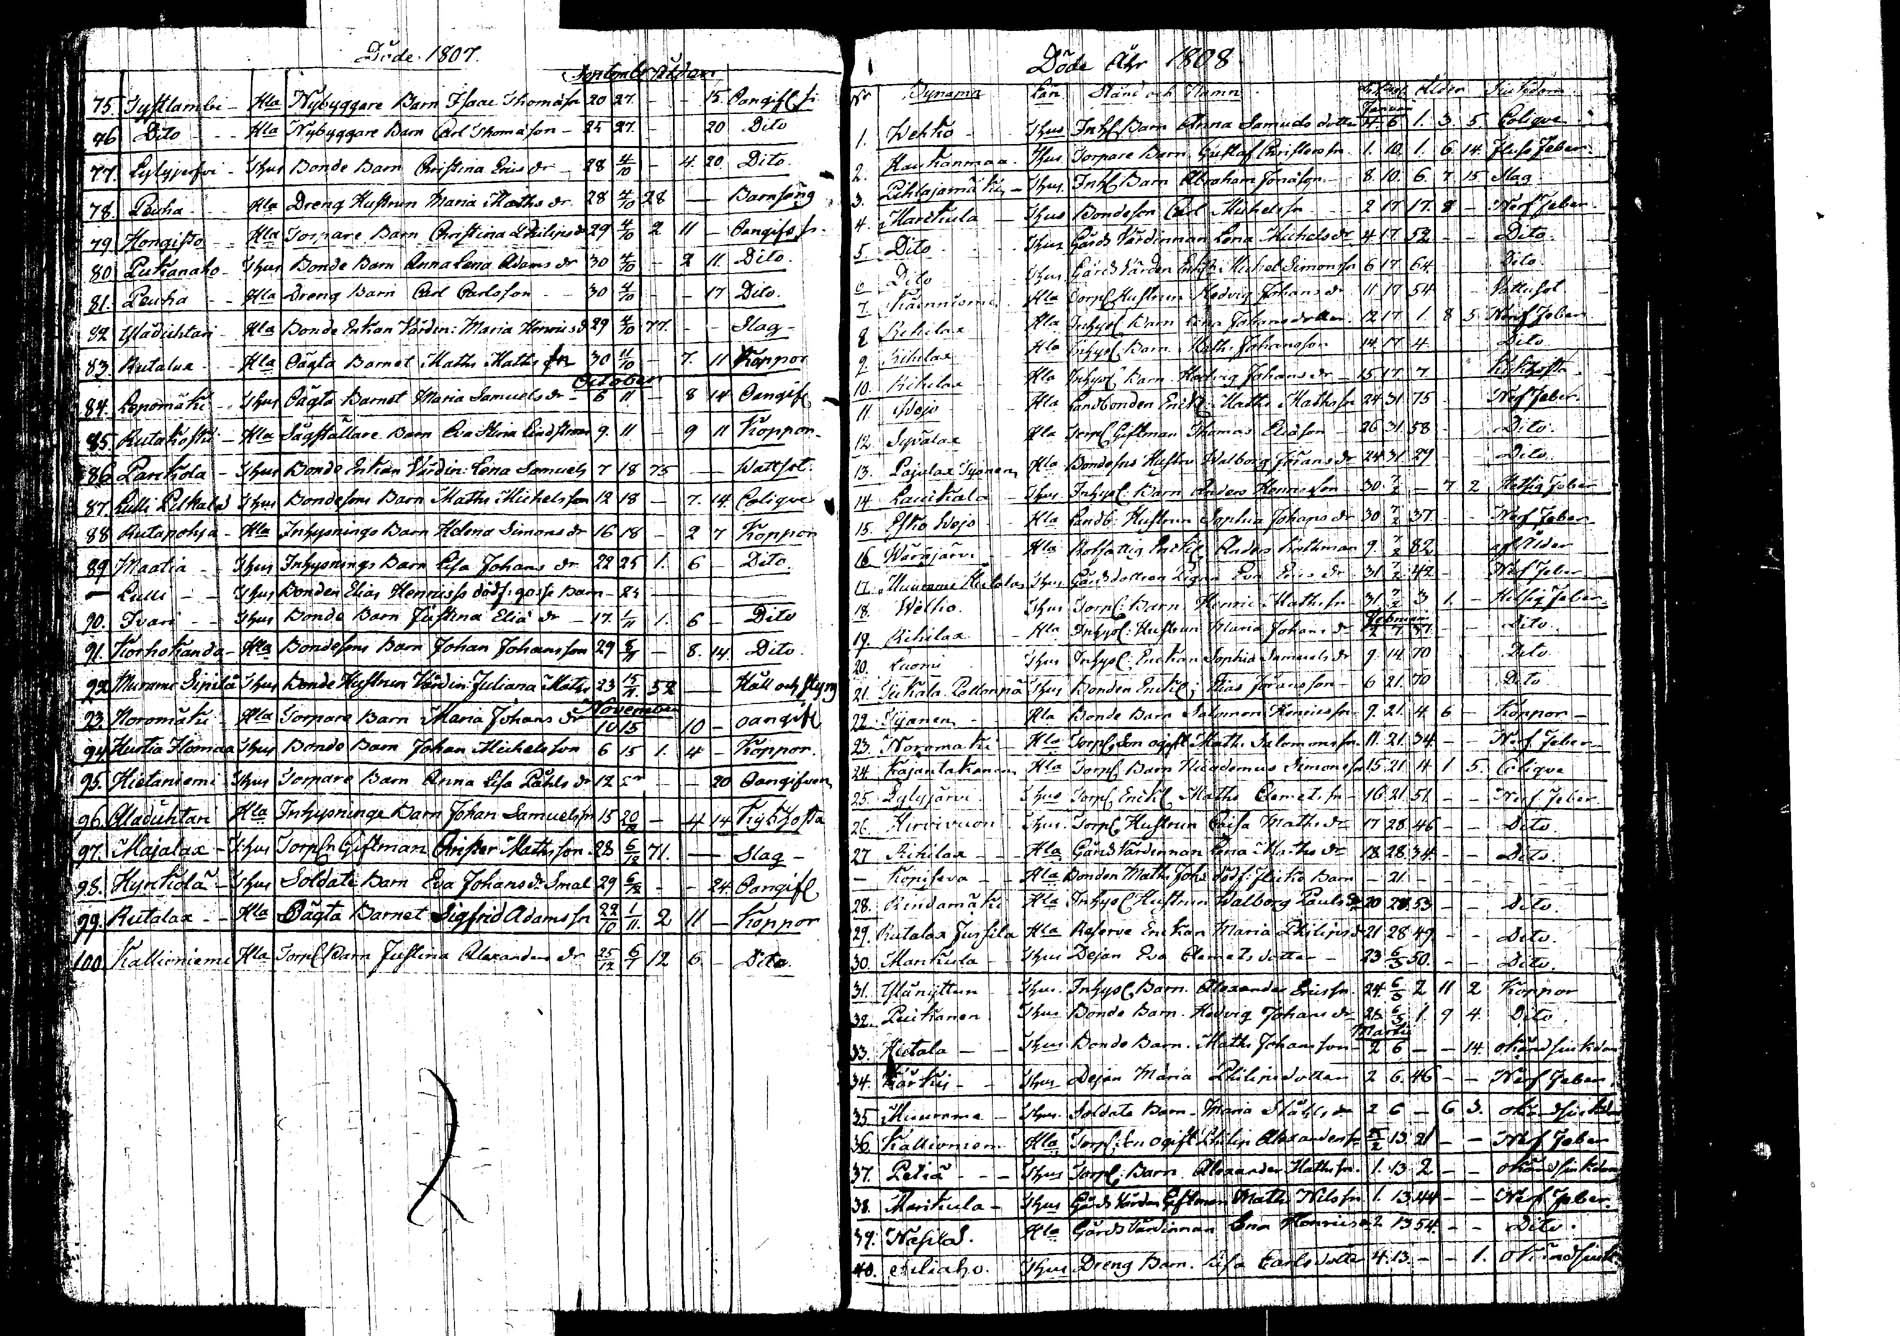 Döde 1807.
September Ålder
75. Tyftlambi - Hla Nybyggare Barn Isaac Thomass. 20 27. - - 15. Oangifl. si
76 Dito - - Hla Nybyggare Barn Carl Thomasson - 25 27. - 20 Dito
77. Lylyjerfvi - Thus Bonde Barn Christina Erics dr - 28 4/10 - 4. 20. Dito.
78. Peuha - - Hla Dreng Hustrun Maria Maths dr. 28 4/10 28 - Barnsäng
79 Hongisto - Hla Torpare Barn Christina Philips dr 29 4/10 2 11 - Oangifl. s.
80. Putkanaho - Thus Bonde Barn Anna Lena Adams dr 30 4/10 - 2 11. Dito.
81. Peuha - - Hla Dreng Barn Carl Carlsson - - 30 4/10 - - 17 Dito.
82 - Hla Bonde Enkan Värdin: Maria Henrics d 29 4/10 77. - - Slag -
83. Rutalax - - Hla Oägta Barnet Maths Maths sn 30 11/10 - 7. 11 Koppor
October
84. Lepomäki - Thus Oägta Barnet Maria Samuels dr - 6 11 - 8 14 Oangifl
85. Rutakoski - Hla Barn Eva Stina Lindström 9. 11 - 9 11 Koppor.
86 Parckola - Thus Bonde Enkan Värdin: Lena Samuels 7 18 75 - - Wattsot.
87. Lulli Pelkala Thus Bondesons Barn Maths Michelsson 12 18 - 7. 14. Colique
88 Rutapohja - Hla Inhysnings Barn Helena Simons dr 16 18 - 2 7 Koppor
89. Maatia - Thus Inhysnings Barn Lisa Johans dr 22 25 1. 6 - Dito.
- Lulli - - Thus Bonden Elias Henriss dödf: gosse Barn - 25
90. Ivari - - Thus Bonde Barn Justina Eliæ dr - 17. 1/11 1. 6 - Dito
91. Korhokanda - Hla Bondesons Barn Johan Johansson 29 8/11 - 8. 14. Dito.
92. Murame Sipilä Thus Bonde Hustrun Värdin: Juliana Maths 23 15/11 52 - - Håll och styng
November
93. Noromäki - Hla Torpare Barn Maria Johans dr 10 15 - 10 - oangifl
94. Hurtia Hoomaa Thus Bonde Barn Johan Michelsson 6 15 1. 4 - Koppor.
95. Hietaniemi Thus Torpare Barn Anna Lisa Påhls dr 12 - - 20 Oangifven
96. Hla Inhysninge Barn Johan Samuelssn 15 20/12 - 4 14 Kikhosta
97. Majalax - Thus Torpsn Giftman Christer Mathsson. 28 6/12 71. - Slag -
98. Hyrkölä - Thus Soldats Barn Eva Johans dr Smal 29 6/12 - - 24. Oangifl
99. Rutalax - - Hla Oägta Barnet Sigfrid Adams sn 29/10 1/11. 2 11 - Koppor
100. Kallioniemi Hla Torp: Barn Justina Alexanders dr. 25/12 6/1 12 6 - Dito.
Döde Åhr 1808.
No Bynamn Län Stånd och Namn. Ålder Siukdom.
Januari
1. Wehko - Thus Inhs Barn Anna Samuels dotter 4. 6 1. 3. 5. Colique
2. Haukanmaa. Thus Torpare Barn Gustaf Christerssn. 1. 10. 1. 6 14. Fluss feber.
3. Pihlajamäki - Thus Inhs Barn Abraham Jonasson - 8. 10. 6. 7 15 Slag.
4. Marckula - Thus Bondeson Carl Michelssn - - 2 17 17. 8 - Nerf feber.
5. Dito - Thus Gårds Värdinnan Lena Michelsdr. 4. 17. 52 - - Dito.
6 Dito Thus Gårds Värden Enkl: Michel Simonssn 6 17 64. - - Dito.
7. Hla Torps Hustrun Hedvig Johans dr 11 17 54 - Vattusot
8. Rihilax Hla Inhys: Barn Lena Johansdotter. 12 17 1. 8 5. Nerf feber
9. Rihilax Hla Inhys: Barn Maths Johansson 14. 17. 4. Dito.
10. Rihilax Hla Inhys: Barn Hedvig Johans dr - 15 17 7 Kikhosta.
11 Wejo - Hla Landbonden Enkl: Maths Mathssn 24 31 75 - Nerf feber.
12. Syvälax Hla Torps Giftman Thomas Eliæson 26. 31. 58 - - Dito.
13. Pajulax Hla Bondesns Hustru Walborg Jörans dr 24 31 29 - Dito.
14. Laukkala Thus Inhys: Barn Anders Henricsson 30 7/2 - 7 2 Hetsig feber
15. Esko Wejo - Hla Landb: Hustrun Sophia Johans dr 30 7/2 37. - Nerf feber.
16 Wärnjärvi - Hla Enkl: Anders 9. 7/2 82 - af Ålder
17. Muurame Thus Gårds dottren Pigan Eva Erics dr 31 7/2 42 - - Nerf feber.
18. Welho. Thus Torps: Barn Henric Mathssn. 31 7/2 3 1. - Hetsig feber.
Februari
19. Rihilax - Hla Inhys: Hustrun Maria Johans dr 2 7 37. - - Dito.
20. Luomi Thus Inhys: Enckan Sophia Samuels dr 9. 14. 70 - Dito
21. Thus Bonden Enkl: Elias Jöransson - 6 21. 70 - Dito
22. Tyänen - Hla Bonde Barn Salomon Henricssn. 9. 21. 4 6 - Koppor -
23. Noromäki Hla Torps Son ogift Maths Salomonssn 11. 21. 34. - Nerf. feber
24. Hla Torps Barn Nicodemus Simonssn 15 21 11 1 5. Colique
25. Lylyjärvi Thus Torps Enkl Maths Clemets sn - 16 21 51 - - Nerf feber
26. Hirvivuori - Thus. Torps Hustrun Caisa Maths dr 17 28 46 - - Dito.
27 Rihilax - - Hla Gårds Värdinnan Lena Maths dr 18 28. 34 - - Dito.
- Hla Bonden Maths dödf: flicks Barn - 21. -
28. Rindamäki Hla Inhys: Hustrun Walborg Pauls dr 20 28. 53 - Dito.
29. Rutalax Jussila Hla Reserve Enckan Maria Philips d 21 28 49 - - Dito.
30. Marckula - Thus Dejan Eva Clemetsdotter - 23 6/3 50. - - Dito.
31. Ylänyttun - Thus. Inhys: Barn. Alexander Ericssn. 24. 6/3 2 11 2 Koppor
32. Puikonen Thus Bonde Barn. Hedvig Johans dr 28 6/3 1. 9 4. Dito.
Martii
33. Hietala - - Thus Bonde Barn. Maths Johansson 2 6 - - 14. okändsiukdom
34. Kärkis - - Thus Dejan Maria Philipsdotter 2 6. 46 - - Nerf feber.
35. Muurame - Thus. Soldats Barn. Maria Ståhls dr 2 6 - 6 3. okändsiukdom
36. Kallioniem Hla Torps: Son ogift Philip Alexanderssn 25/2 13. 21 - - Nerf feber
37. Petiä - - - Thus Torps: Barn Alexander Mathssn. 1. 13. 2 - - okändsiukdom
38. Marckula - Thus Gårds Värden Giftman Maths Nilssn 1. 13. 44 - - Nerf feber.
39. Hla Gårds Värdinnan Lena Henrics 2 13 54. - - Dito.
40. Thus Dreng Barn. Lisa Carlsdotter 4. 13. - - 1. okändsiuk.